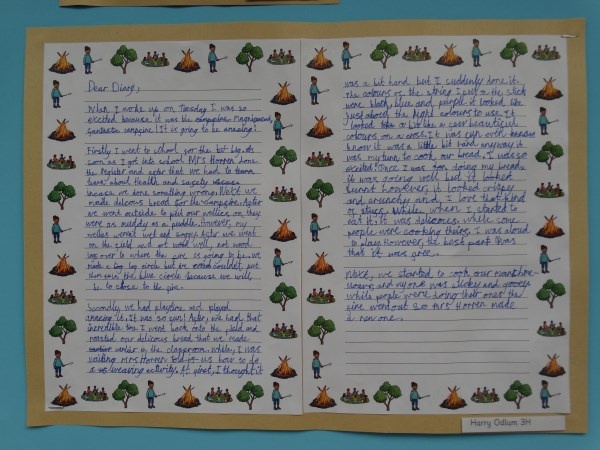 Dear Diary,
When I woke up on Tuesday I was so
excited because it was the magnificent
fantastic campfire! It is going to be amazing!
Firstly I went to school for the but
soon as I got into school Mrs Horren done
the register and after that we had to
learn about health and safety
incase we done something wrong. Next we
made delicous bread for the campfire. After
we went outside to put our wellies on they
were as muddy as a puddle. However, my
wellies weren't wet and soggy. After we went
on the field and got wood well, not wood
log over to where the fire is going to be. we
made a log circle but we couldn't put
the blue circle because we will
be to close to the fire.
Secondly, we had playtime and played
amazing it. It was so fun! After, we had that
incredible time I went back onto the field and
roasted our delicous bread that we made
earlier in the classroom. While, I was
waiting Mrs Horren told us how to do
a weaving activity. At first, I thought it
was a bit hard but I suddenly done it.
The colours of the string I put on the stick
were black, blue and purple it looked like
just about the right colours to use. It
looked like a bit like a cross beautiful
colours on a cross. It was fun even
know it was a little bit hard anyway it
was my turn to cook our bread. I was so
excited! Once I was done doing my bread
it was well but it looked
burnt however, it looked crispy
and crunchy and, I love that kind
of stuff. While, when I started to
eat it it was delicious. while some
people were cooking theirs, I was aloud
to play. However, the best part was
that it was free.
Next, we started to cook our marshmellows
and my one was sticky and gooey
while people were doing their ones the
fire went out so Mrs Horren made
a new one.
Harry Odlum 3H